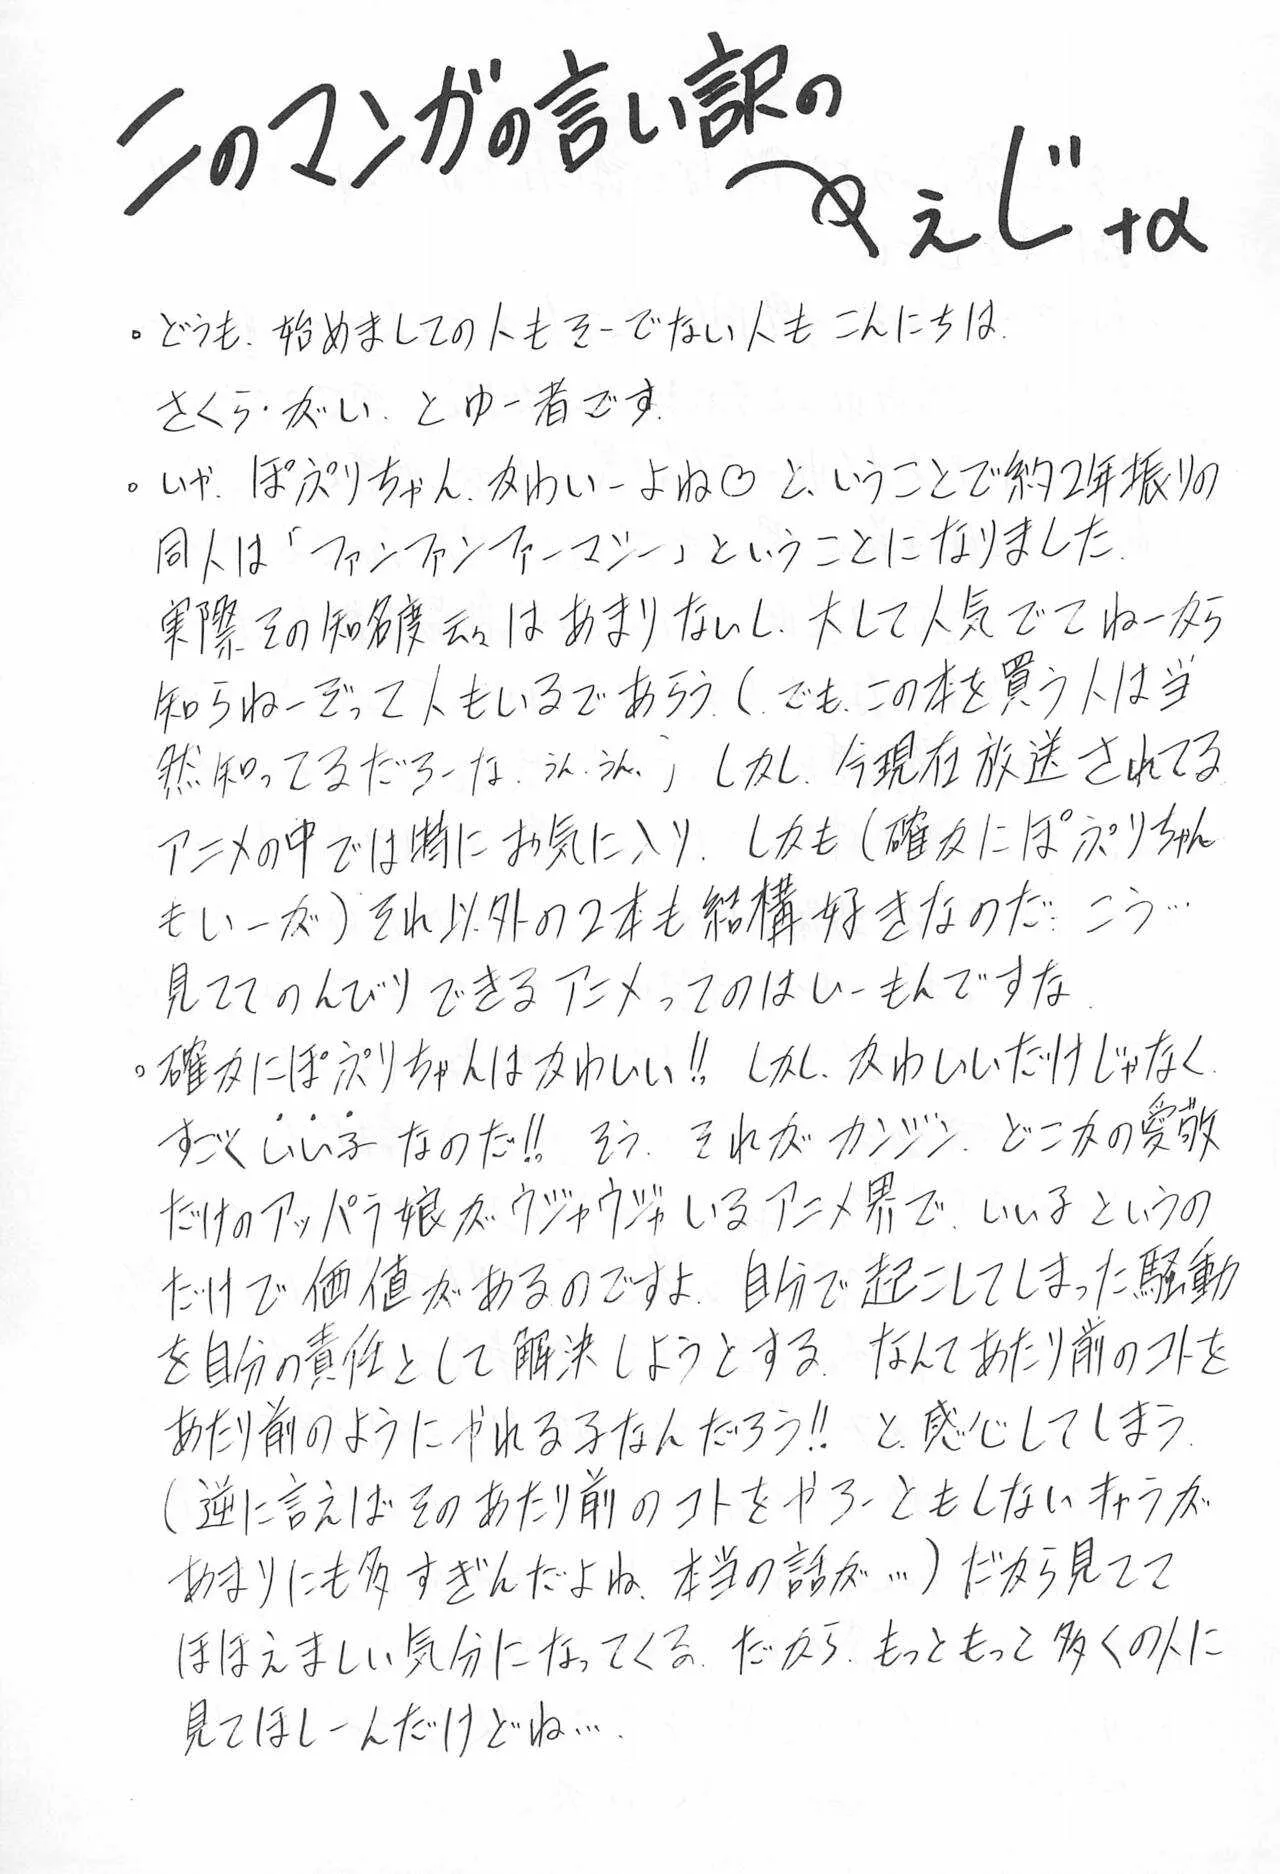 このマンガの言い訳の
ぺえじ +α
。どうも、始めましての人もそーでない人も こんにちは、
さくら・がい、とゆー者です。
。いや、ぽぷりちゃん、かわいーよね♡ と、いうことで約2年振りの
同人は「ファンファンファーマシー」ということになりました。
実際その知名度云々はあまりないし、大して人気でてねーから
知らねーぞって人もいるであろう。(でも、この本を買う人は当
然知ってるだろーな、うん、うん。) しかし、今現在放送されてる
アニメの中では特にお気に入り、しかも(確かにぽぷりちゃん
もいーが)それ以外の2本も結構好きなのだ。こう…
見ててのんびりできるアニメってのはいーもんですな。
。確かにぽぷりちゃんはかわいい!! しかし、かわいいだけじゃなく、
すごくいい子なのだ!! そう、それがカンジン、どこかの愛敬
だけのアッパラ娘がウジャウジャいるアニメ界で、いい子というの
だけで価値があるのですよ。自分で起こしてしまった騒動
を自分の責任として解決しようとする、なんてあたり前のコトを
あたり前のようにやれる子なんだろう!! と、感心してしまう。
(逆に言えばそのあたり前のコトをやろーともしないキャラが
あまりにも多すぎんだよね、本当の話が…)だから見てて
ほほえましい気分になってくる。だから、もっともっと多くの人に
見てほしーんだけどね…。